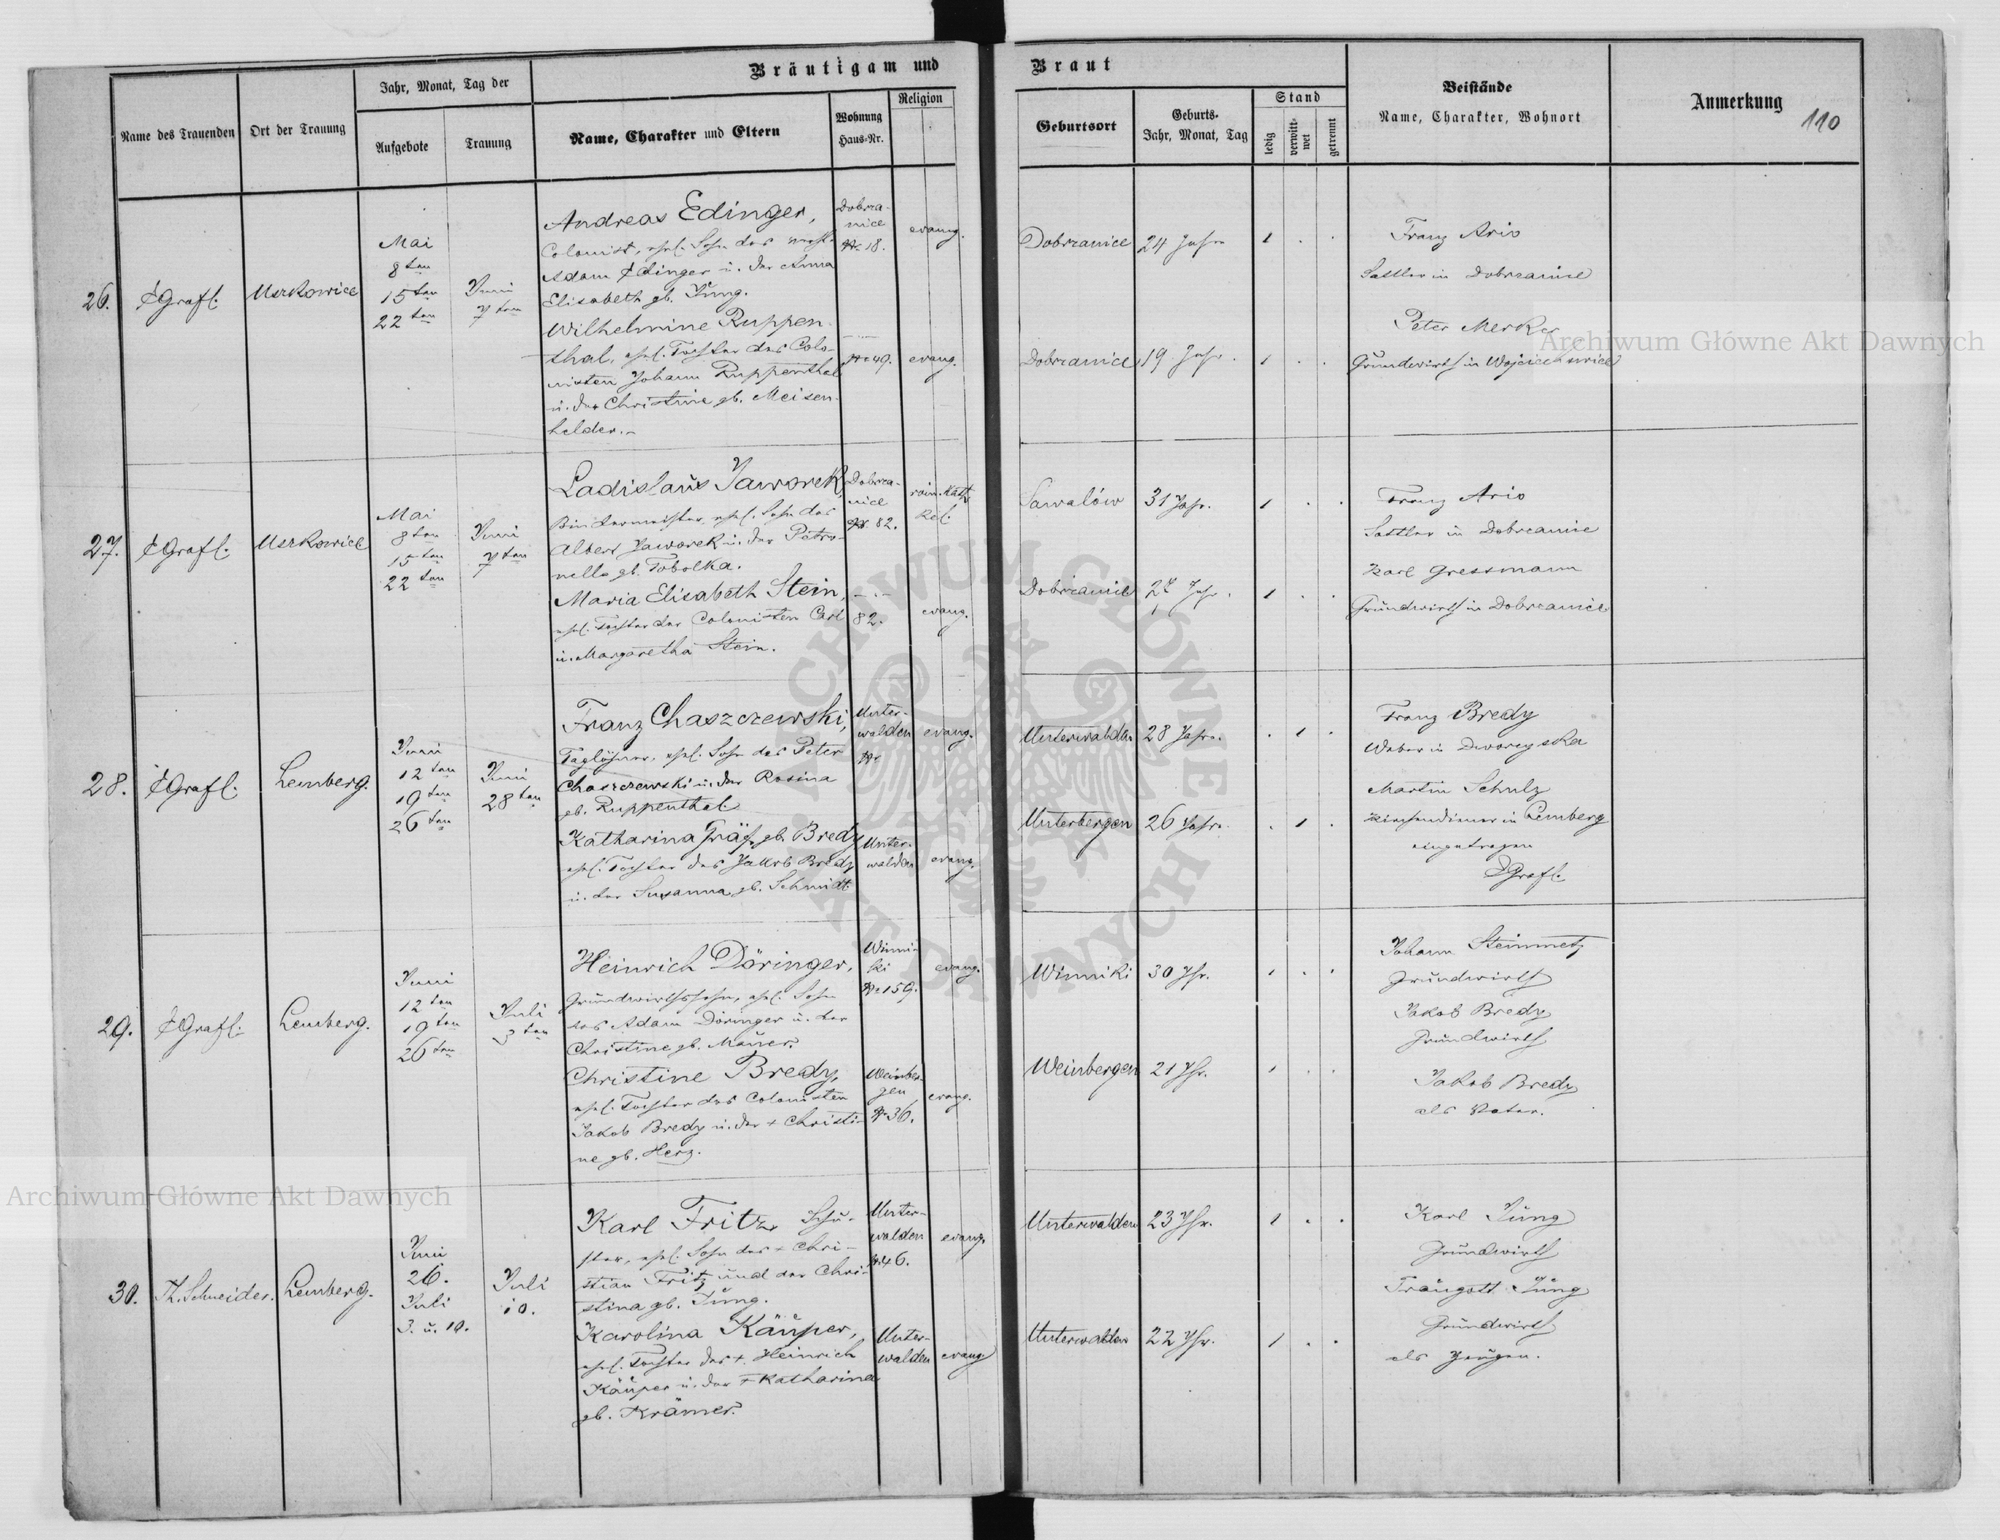 Bräutigam und
Braut
Name des Trauenden
Ort der Trauung
Jahr, Monat, Tag der
Aufgebote
Trauung
Name, Charakter und Eltern
Wohnung
Haus-Nr.
Religion
Geburtsort
Geburts-
Jahr, Monat, Tag
Stand
ledig
verwitt-
wet
getrennt
Beistände
Name, Charakter, Wohnort
Anmerkung
110
26.
EGrafl.
Uszkowice
Mai
8ten
15ten
22ten
Juni
7ten
Andreas Edinger,
Colonist, ehel. Sohn des
Adam Edinger u. der Anna
Elisabeth gb. Jung.
Dobrza-
nice
Nr 18.
evang.
Dobrzanice
24 Jahr
1 . .
Franz Ario
Sattler in Dobrzanice
Wilhelmine Ruppen-
thal, ehel. Tochter des Colo-
nisten Johann Ruppenthal
u. der Christine gb. Meisen-
helder.-
Nr 49.
evang.
Dobrzanice
19 Jahr.
1 . .
Peter Merker
Grundwirth in
27.
EGrafl.
Uszkowice
Mai
8ten
15ten
22ten
Juni
7ten
Ladislaus Jaworek,
Bindermeister, ehel. Sohn des
Albert Jaworek u. der Petro-
nella gb. Tobolka.
Dobrza-
nice
Nr 82.
röm. kath.
Rel.
31 Jahr.
1 . .
Franz Ario
Sattler in Dobrzanice
Maria Elisabeth Stein,
ehel. Tochter der Colonisten Carl
u. Margaretha Stein.
82.
evang.
Dobrzanice
Jahr.
1 . .
Karl Gressmann
Grundwirth in Dobrzanice
28.
EGrafl.
Lemberg.
Juni
12ten
19ten
26ten
Juni
28ten
Franz Chaszczewski,
Taglöhner, ehel. Sohn des Peter
Chaszczewski u. der Rosina
gb. Ruppenthal
Unter-
walden
Nr
evang.
Unterwalden
28 Jahre.
. 1 .
Franz Bredy
Weber in
Katharina Gräf, gb. Bredy
ehel. Tochter des Jakob Bredy
u. der Susanna, gb. Schmidt
Unter-
walden
evang.
Unterbergen
26 Jahre.
. 1 .
Martin Schulz
Kirchendiener in Lemberg
eingetragen
EGrafl.
29.
EGrafl.
Lemberg.
Juni
12ten
19ten
26ten
Juli
3ten
Heinrich Döringer,
Grundwirthssohn, ehel. Sohn
des Adam Döringer u. der
Christine gb. Mauer.
Winni-
ki
Nr 159.
evang.
Winniki
30 Jhr.
1 . .
Johann Steinmetz
Grundwirth
Jakob Bredy
Grundwirth
Christine Bredy,
ehel. Tochter des Colonisten
Jakob Bredy u. der + Christi-
ne gb. Herz.
Weinber-
gen
Nr 36.
evang.
Weinbergen
21 Jhr.
1 . .
Jakob Bredy
als Vater.
30.
Th. Schneider.
Lemberg.
Juni
26.
Juli
3. u. 10.
Juli
10.
Karl Fritz, Schu-
ster, ehel. Sohn des + Chri-
stian Fritz und der Chri-
stina gb. Jung.
Unter-
walden
Nr 46.
evang.
Unterwalden
23 Jhr.
1 . .
Karl Jung
Grundwirth
Traugott Jung
Grundwirth
als Zeugen.
Karolina Käuper,
ehel. Tochter des +. Heinrich
Käuper u. der + Katharina
gb. Krämer.
Unter-
walden
evang
Unterwalden
22 Jhr.
1 . .
Archiwum Główne Akt Dawnych
Archiwum Główne Akt Dawnych
ARCHIWUM GŁÓWNE AKT DAWNYCH